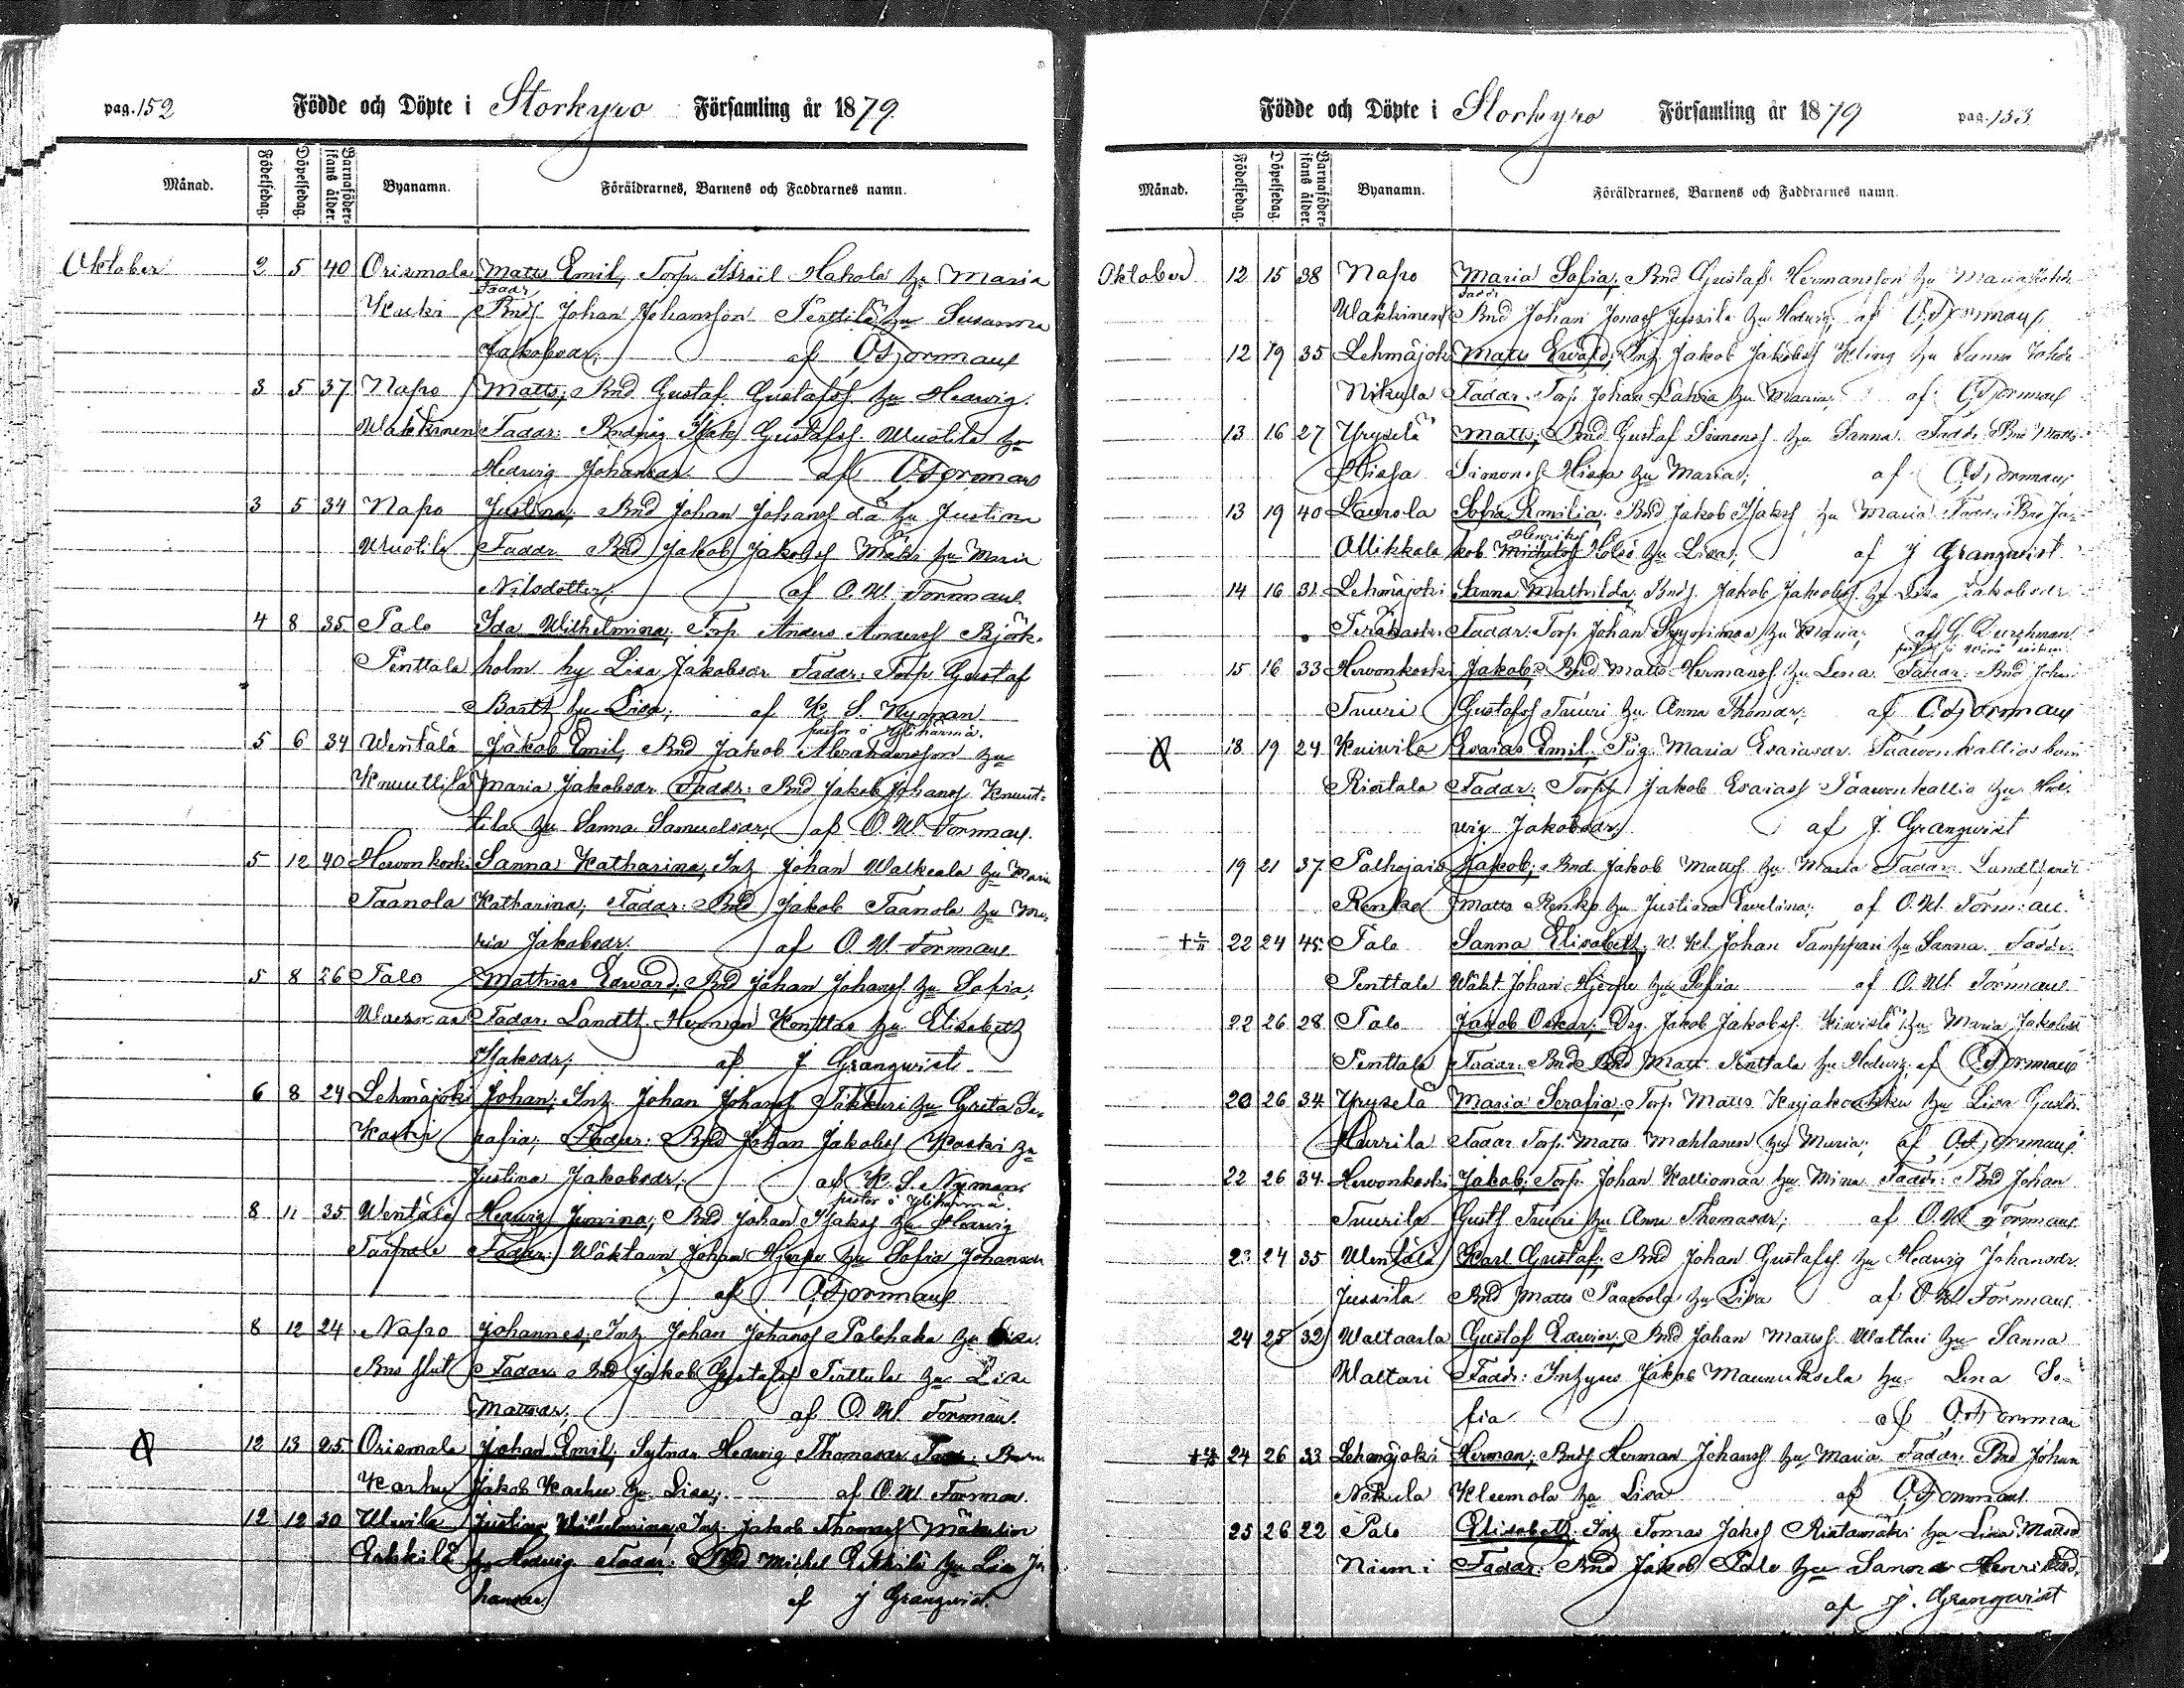 pag. 152 Födde och Döpte i Storkyro Församling år 1879.
Månad. Födelsedag. Döpelsedag. Barnaföderskans ålder. Byanamn. Föräldrarnes, Barnens och Faddrarnes namn.
Oktober 2 5 40 Orismala Matts Emil, Torp. Israel Hakola hu Maria
Faddr
Kaski Bnd Johan Johansson Penttilä hu Susanna
Jakobsdr; af O.W. Formans
3 5 37 Napo Matts; Bnd Gustaf Gustafss. hu Hedwig.
Wäkkinen Faddr: Isak Gustafss. Wuolila hu
Hedwig Johansdr. af O.W. Formans
3 5 34 Napo Justina; Bnd Johan Johanss då hu Justina
Wuotila Faddr Bnd Jakob Jakobss Mäki hu Maria
Nilsdotter; af O.W. Formans
4 8 35 Palo Ida Wilhelmina; Torp. Anders Anderss Björk-
Penttala holm hu Lisa Jakobsdr Faddr: Torp Gustaf
Barth hu Lisa; af K. S. Nyman
pastor i Ylihärmä.
5 6 34 Wentälä Jakob Emil, Bnd Jakob Abrahamsson hu
Knuuttila Maria Jakobsdr Faddr: Bnd Jakob Johanss Knuut-
tila hu Sanna Samuelsdr; af O.W. Formans.
5 12 40 Herwonkoski Sanna Katharina, Inh Johan Walkeala hu Maria
Taanola Katharina, Faddr: Bnd Jakob Taanola hu Ma-
ria Jakobsdr. af O.W. Formans
5 8 26 Palo Mathias Edward; Bnd Johan Johanss hu Sofia;
Faddr: Landth Herman Konttas hu Elisabeth
Isaksdr; af J Granqwist
6 8 24 Lehmäjoki Johan; Inh Johan Johanss Takkuri hu Greta Se-
Koski rafia; Faddr: Bnd Johan Jakobss Koski hu
Justina Jakobsdr; af K. S. Nyman
pastor i Ylihärmä.
8 11 35 Wentälä Hedwig Jemina; Bnd Johan Isakss hu Hedwig
Faddr: Wäktaren Johan Hjerpe hu Sofia Johansdr
af O.W. Formans
8 12 24 Napo Johannes; Inh Johan Johanss Palohaka hu Lisa.
Faddr: Bnd Jakob Gustafss Penttala hu Lisa
Mattsdr; af O.W. Formans.
12 13 25 Orismala Johan Emil; Sytnar Hedwig Thomasdr
Karhu Jakob Karhu hu Lisa; af O.W. Formans.
12 12 30 Ulwila Justina Wilhelmina; Inh. Jakob Thomass
Erkkilä hu Hedwig Faddr: Bnd Michel Erkkilä hu Lisa Jo
hansdr. af J Granqwist.
Födde och Döpte i Storkyro Församling år 1879 pag. 153
Månad. Födelsedag. Döpelsedag. Barnaföderskans ålder. Byanamn. Föräldrarnes, Barnens och Faddrarnes namn.
Oktober 12 15 38 Napo Maria Sofia; Bnd Gustaf Hermansson hu Maria
Faddr
Wäkkinen Bnd Johan Jonass Jussila hu Hedwig; af O.W. Formans
12 19 35 Lehmäjoki Matts Ewald; Inh Jakob Jakobss Kling hu Sanna
Nikula Faddr. Torp Johan Lahia hu Maria; af O.W. Formans
13 16 27 Yryselä Matts; Bnd Gustaf Simonss hu Sanna. Faddr: Bnd Matts
Hissa Simonss Hissa hu Maria; af O.W. Formans
13 19 40 Laurola Sofia Emilia; Bnd Jakob Isakss hu Maria Faddr: Bnd Ja-
Henrikss
Ollikkala kob Hölsö hu Lisa; af J Granqwist
14 16 31 Lehmäjoki Sanna Mathilda; Bnd. Jakob Jakobss. hu Lisa Jakobsdr
Faddr: Torp. Johan hu Maria;
15 16 33 Herwonkoski Jakob; Bnd Matts Hermanss. hu Lena. Faddr: Bnd Johan
Tuuri Gustafss Tuuri hu Anna Thomasdr; af O.W. Formans
18 19 24 Kuiwila Esaias Emil; Pig. Maria Esaiasdr. Paawonkallios barn
Riotala Faddr: Torp Jakob Esaiass Paawonkallio hu Hed-
wig Jakobsdr. af J. Granqwist
19 21 37 Palhojais Jakob; Bnd. Jakob Mattss hu Maria Faddr:
Renko Matts Renko hu Justina Ewelina; af O.W. Formans.
22 24 45 Palo Sanna Elisabeth; Johan Tamppari hu Sanna. Faddr.
Penttala Wäkt Johan Hjerpe hu Sofia af O.W. Formans
22 26 28 Palo Jakob Oskar; Drg. Jakob Jakobss. hu Maria Jakobsd
Penttala Faddr. Bnd Matts Penttala hu Hedwig; af O.W. Formans
20 26 34 Yryselä Maria Serafia; Torp Matts hu Lisa Gustdr.
Hurrila Faddr Torp. Matts Mahlanen hu Maria; af O.W. Formans.
22 26 34 Herwonkoski Jakob; Torp. Johan Kalliomaa hu Mina Faddr: Bnd Johan
Tuurila Gusts Tuuri hu Anna Thomasdr; af O.W. Formans
23 24 35 Wentälä Karl Gustaf; Bnd Johan Gustafss. hu Hedwig Johansdr.
Jussila Bnd Matts Paawola hu Lisa af O.W. Formans.
24 25 32 Waltaarla Gustaf Edwin; Bnd Johan Mattss. Waltari hu Sanna
Waltari Faddr: Jakob Maunuksela hu Lena So-
fia af O.W. Forman
24 26 33 Lehmäjoki Herman; Bnd Herman Johanss hu Maria. Faddr. Bnd Johan
Nikula Kleemola hu Lisa af O.W. Formans
25 26 22 Palo Elisabeth; Inh Tomas Jakss Riotamäki hu Lisa Mattsd
Niemi Faddr. Bnd Jakob Palo hu Sanna Henriksd.
af J. Granqwist